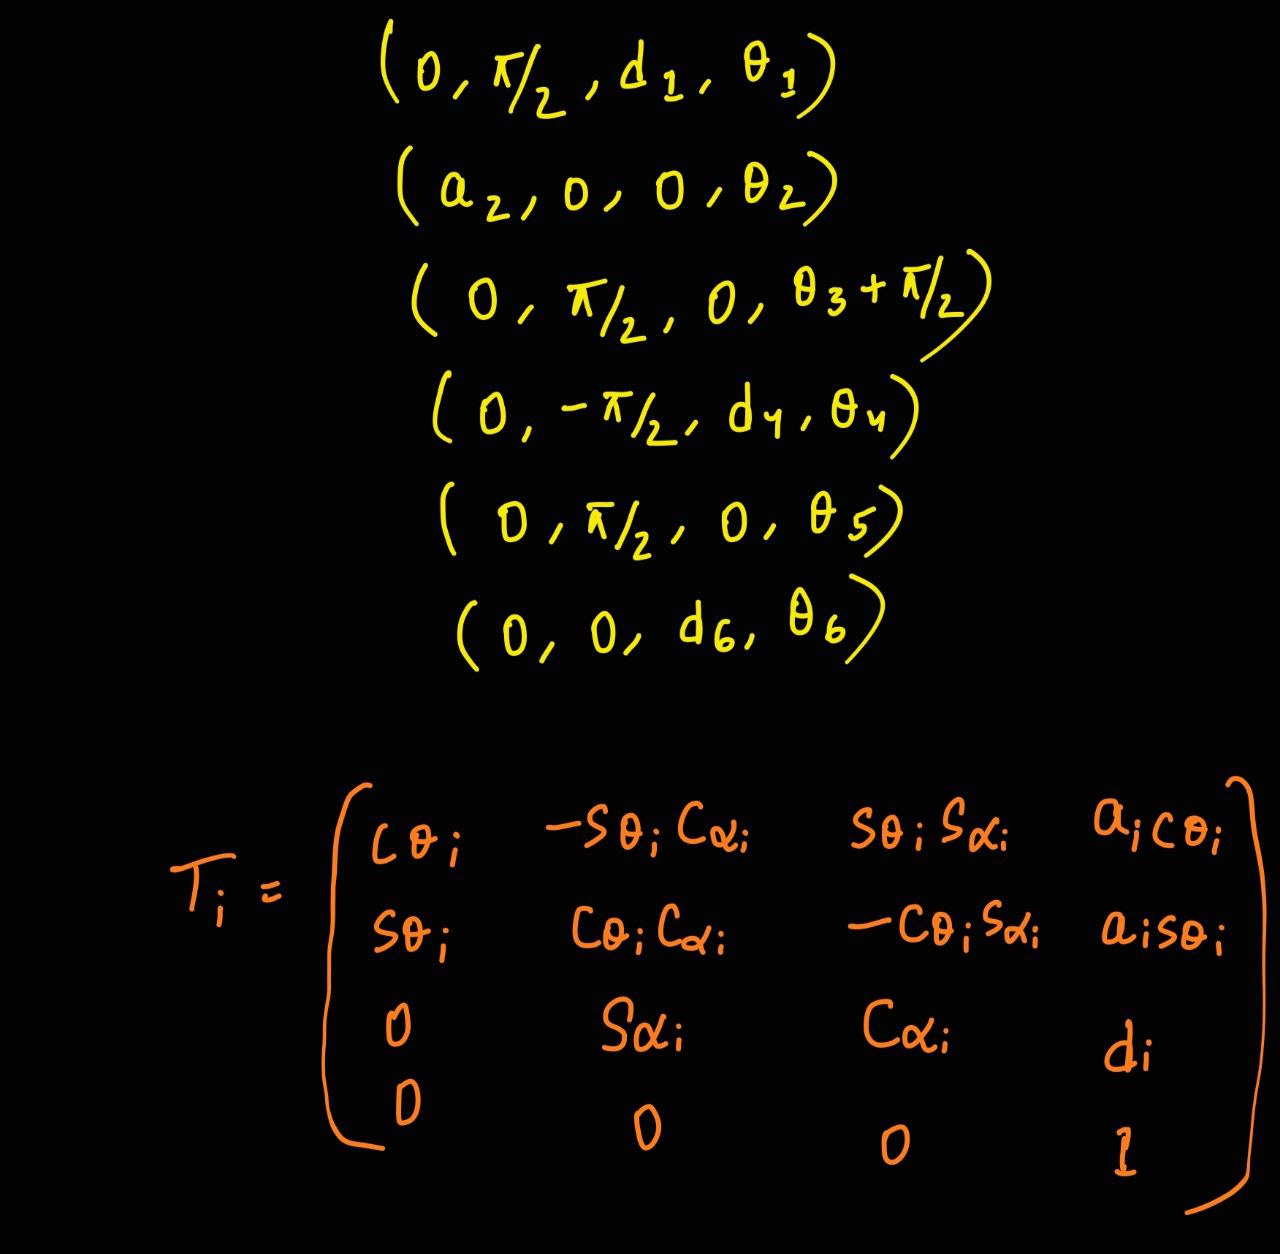 (0, π/2, d₁, θ₁)
(a₂, 0, 0, θ₂)
(0, π/2, 0, θ₃ + π/2)
(0, -π/2, d₄, θ₄)
(0, π/2, 0, θ₅)
(0, 0, d₆, θ₆)
cθᵢ -sθᵢ Cαᵢ sθᵢ Sαᵢ aᵢcθᵢ
Tᵢ = sθᵢ Cθᵢ Cαᵢ -Cθᵢ Sαᵢ aᵢsθᵢ
0 Sαᵢ Cαᵢ dᵢ
0 0 0 1